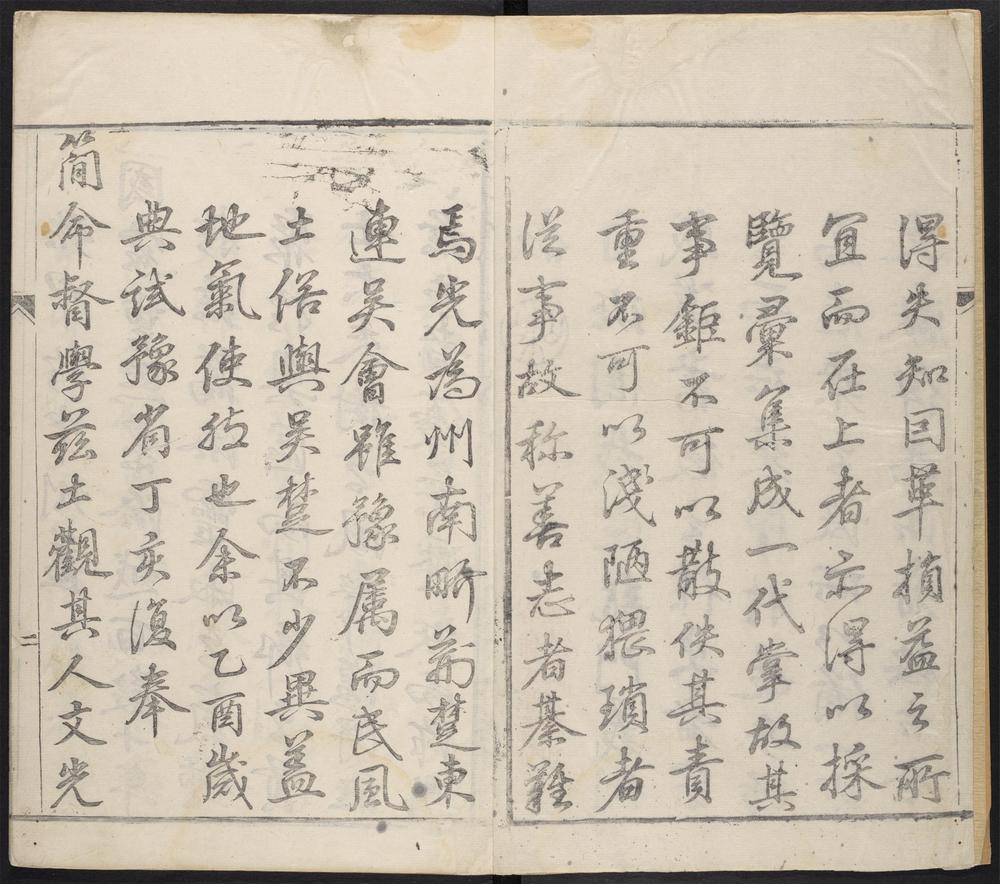 得失知因革損益之所
宜而在上者亦得以採
覽彙集成一代掌故其
事鉅不可以散佚其責
重不可以淺陋猥瑣者
從事故称善志者綦難
焉光為州南畍荊楚東
連吴會雖豫属而民風
土俗與吴楚不少異葢
地氣使然也余以乙酉歲
典試豫省丁亥復奉
簡命督學兹土觀其人文光
二